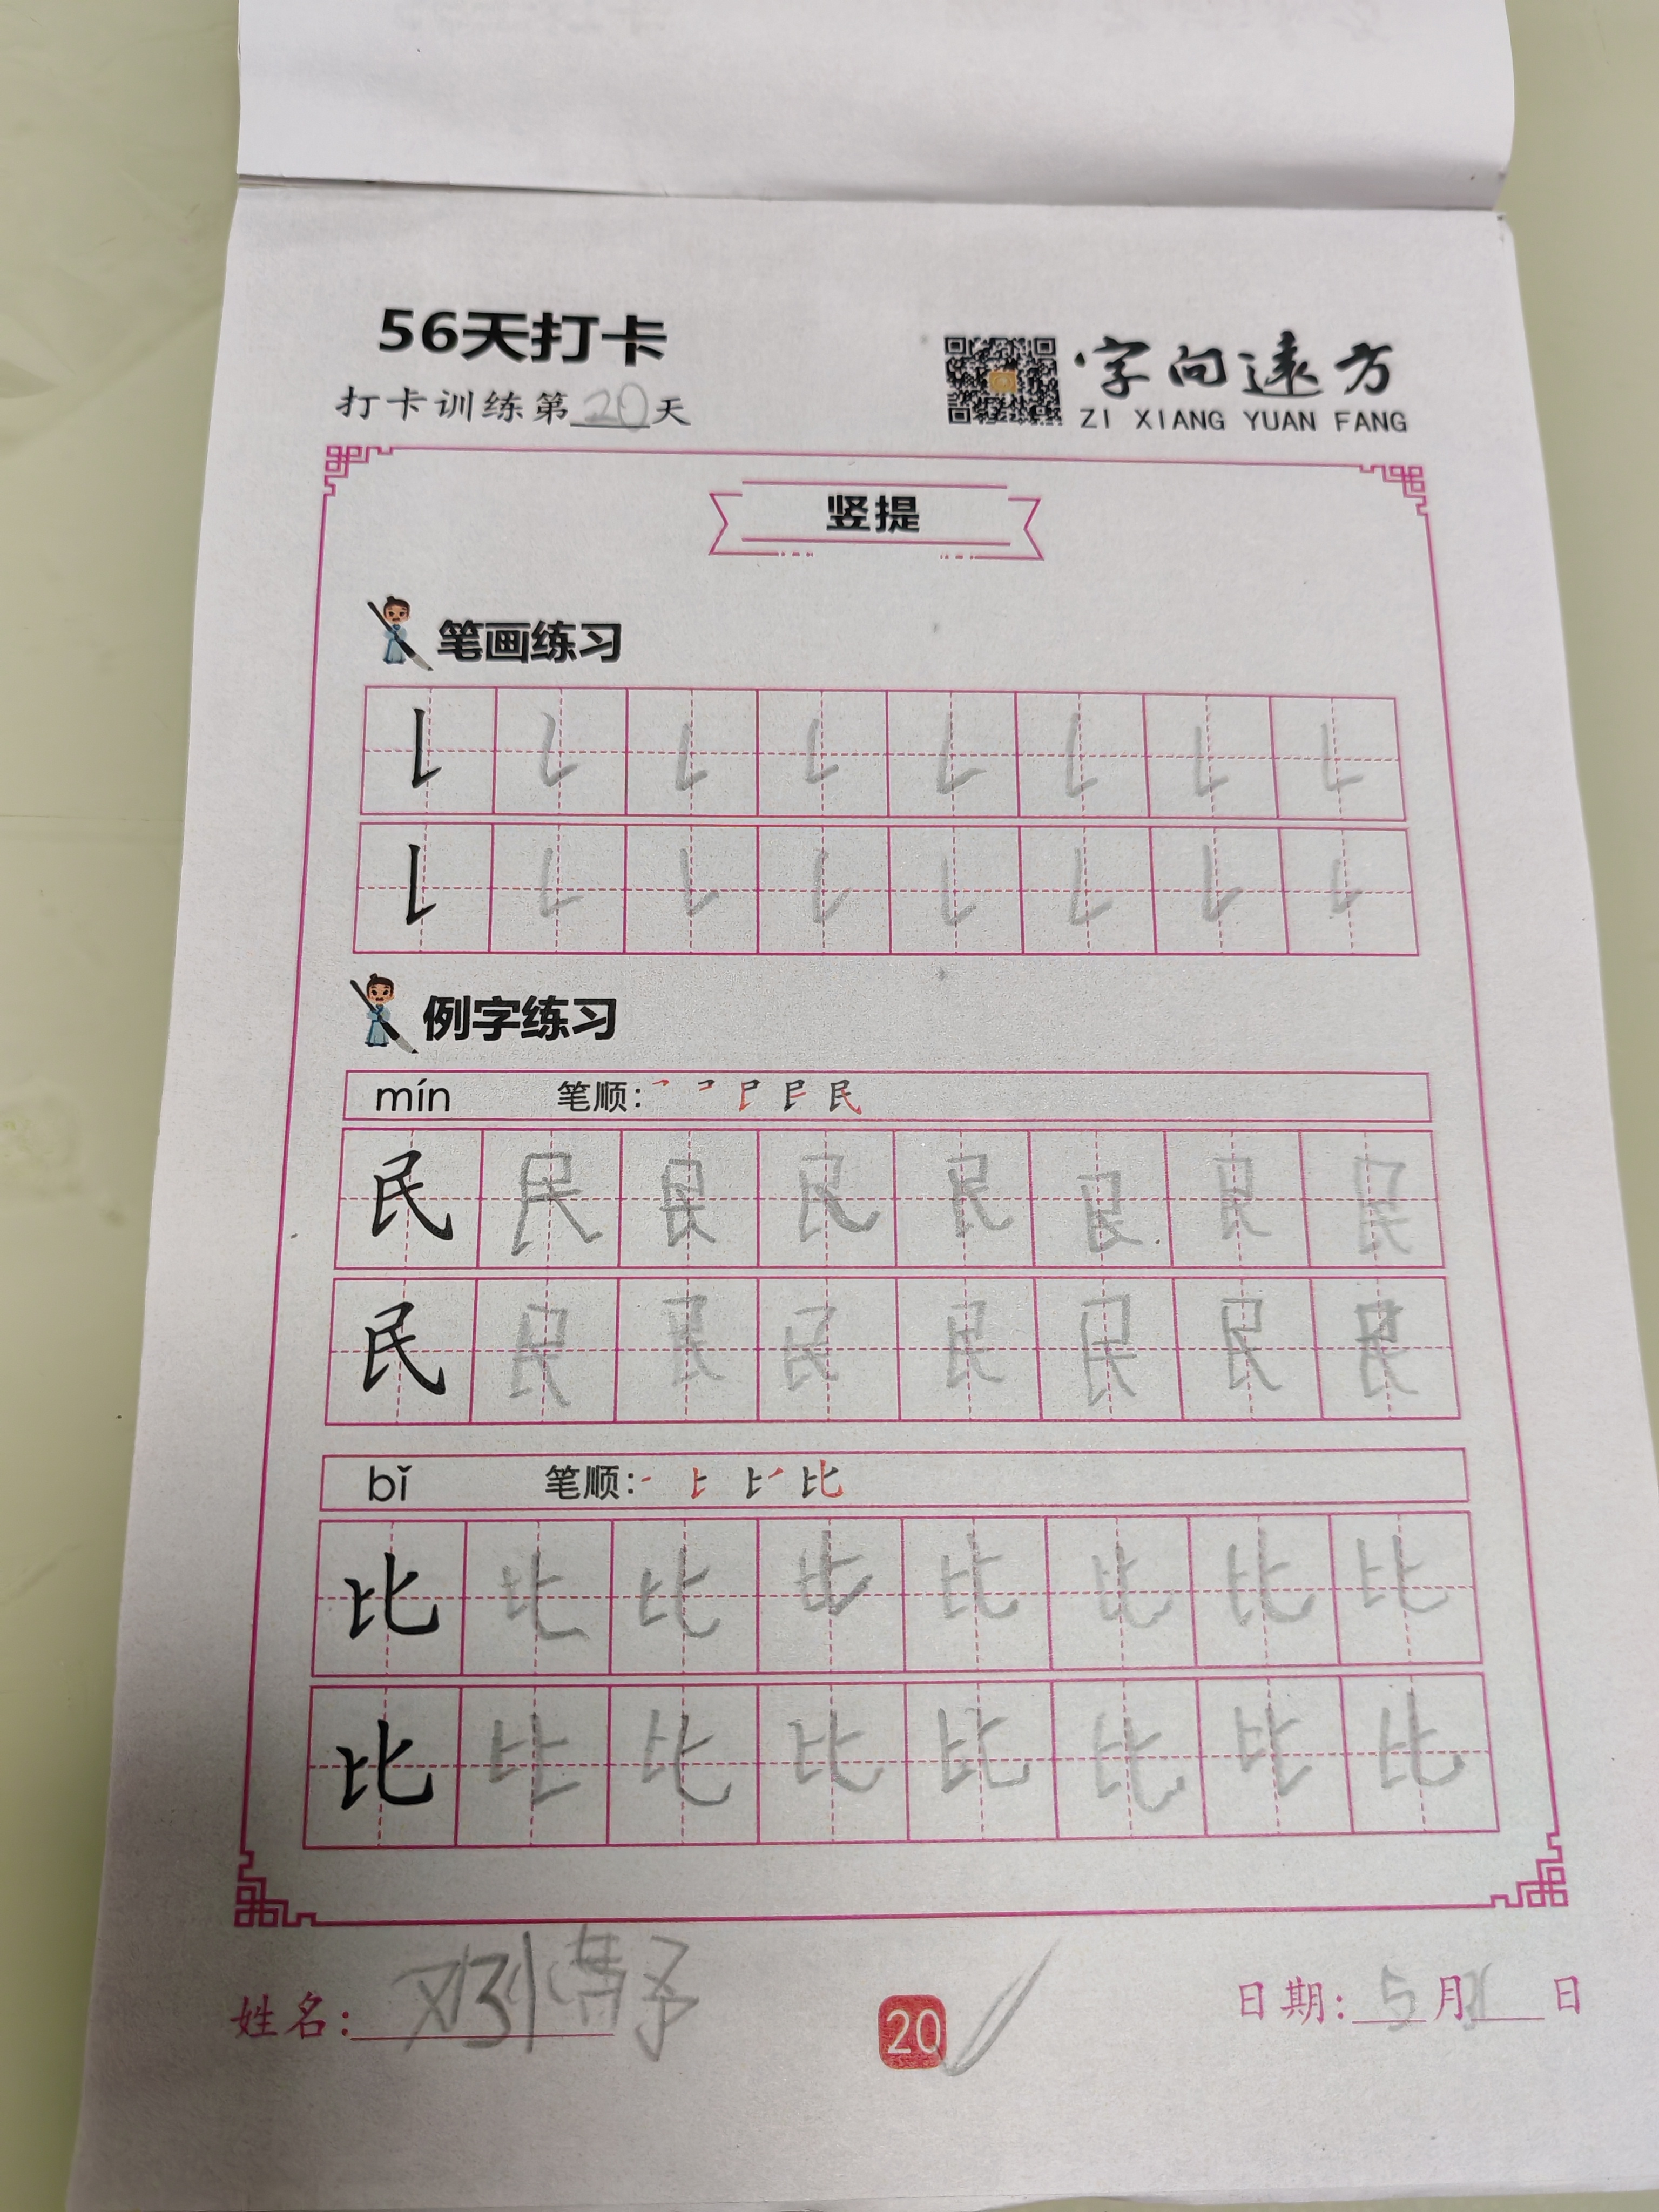 56天打卡
打卡训练第20天
字向遠方
ZI XIANG YUAN FANG
竖提
笔画练习
例字练习
mín 笔顺:
民 民 民 民 民 民 民 民
民 民 民 民 民 民 民 民
bǐ 笔顺:
比 比 比 比 比 比 比 比
比 比 比 比 比 比 比 比
姓名:
20
日期: 5月 日